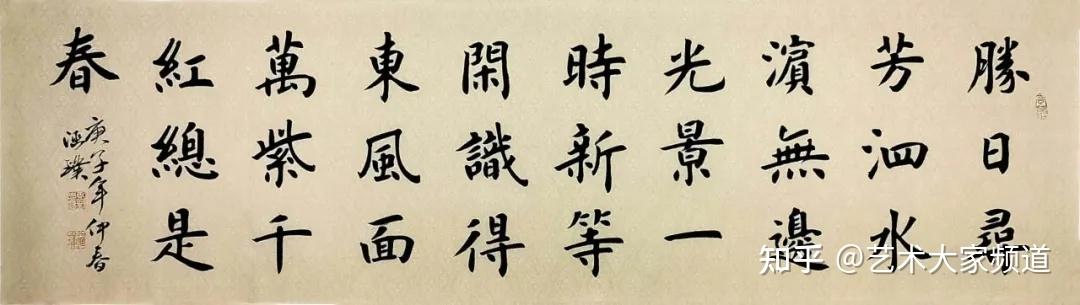 勝日尋
芳泗水
濵無邊
光景一
時新等
閑識得
東風面
萬紫千
紅總是
春
庚子年仲春
知乎 @艺术大家频道